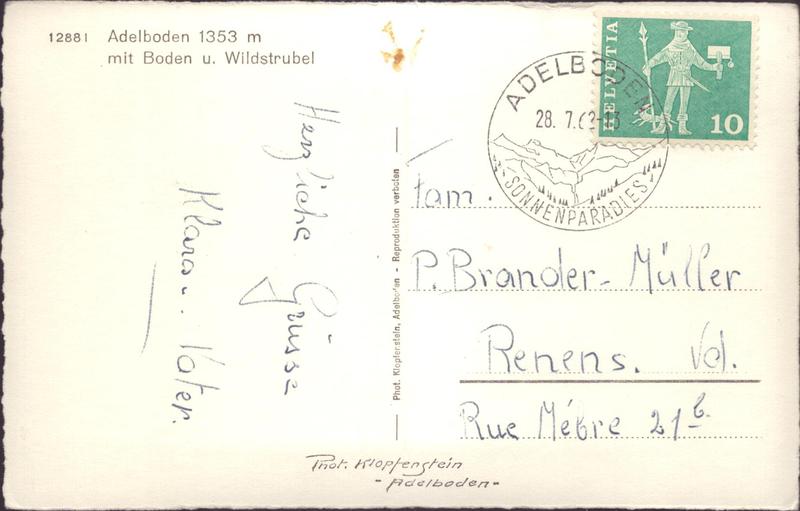 12881 Adelboden 1353 m
mit Boden u. Wildstrubel
Herzliche Grüsse
Klara u. Vater.
Phot. Klopfenstein, Adelboden - Reproduktion verboten
HELVETIA
10
ADELBODEN
28. 7.62-13
SONNENPARADIES
Fam.
P. Brander-Müller
Renens. Vd.
Rue Mébre 21b
Phot. Klopfenstein
- Adelboden -